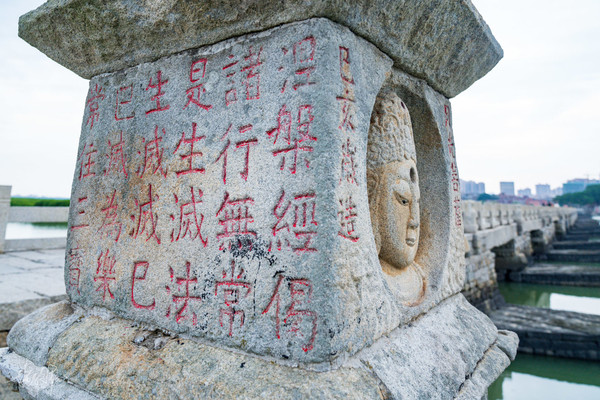 己亥歲造
涅槃經偈
諸行無常
是生滅法
生滅滅已
已滅為樂
常住三寶